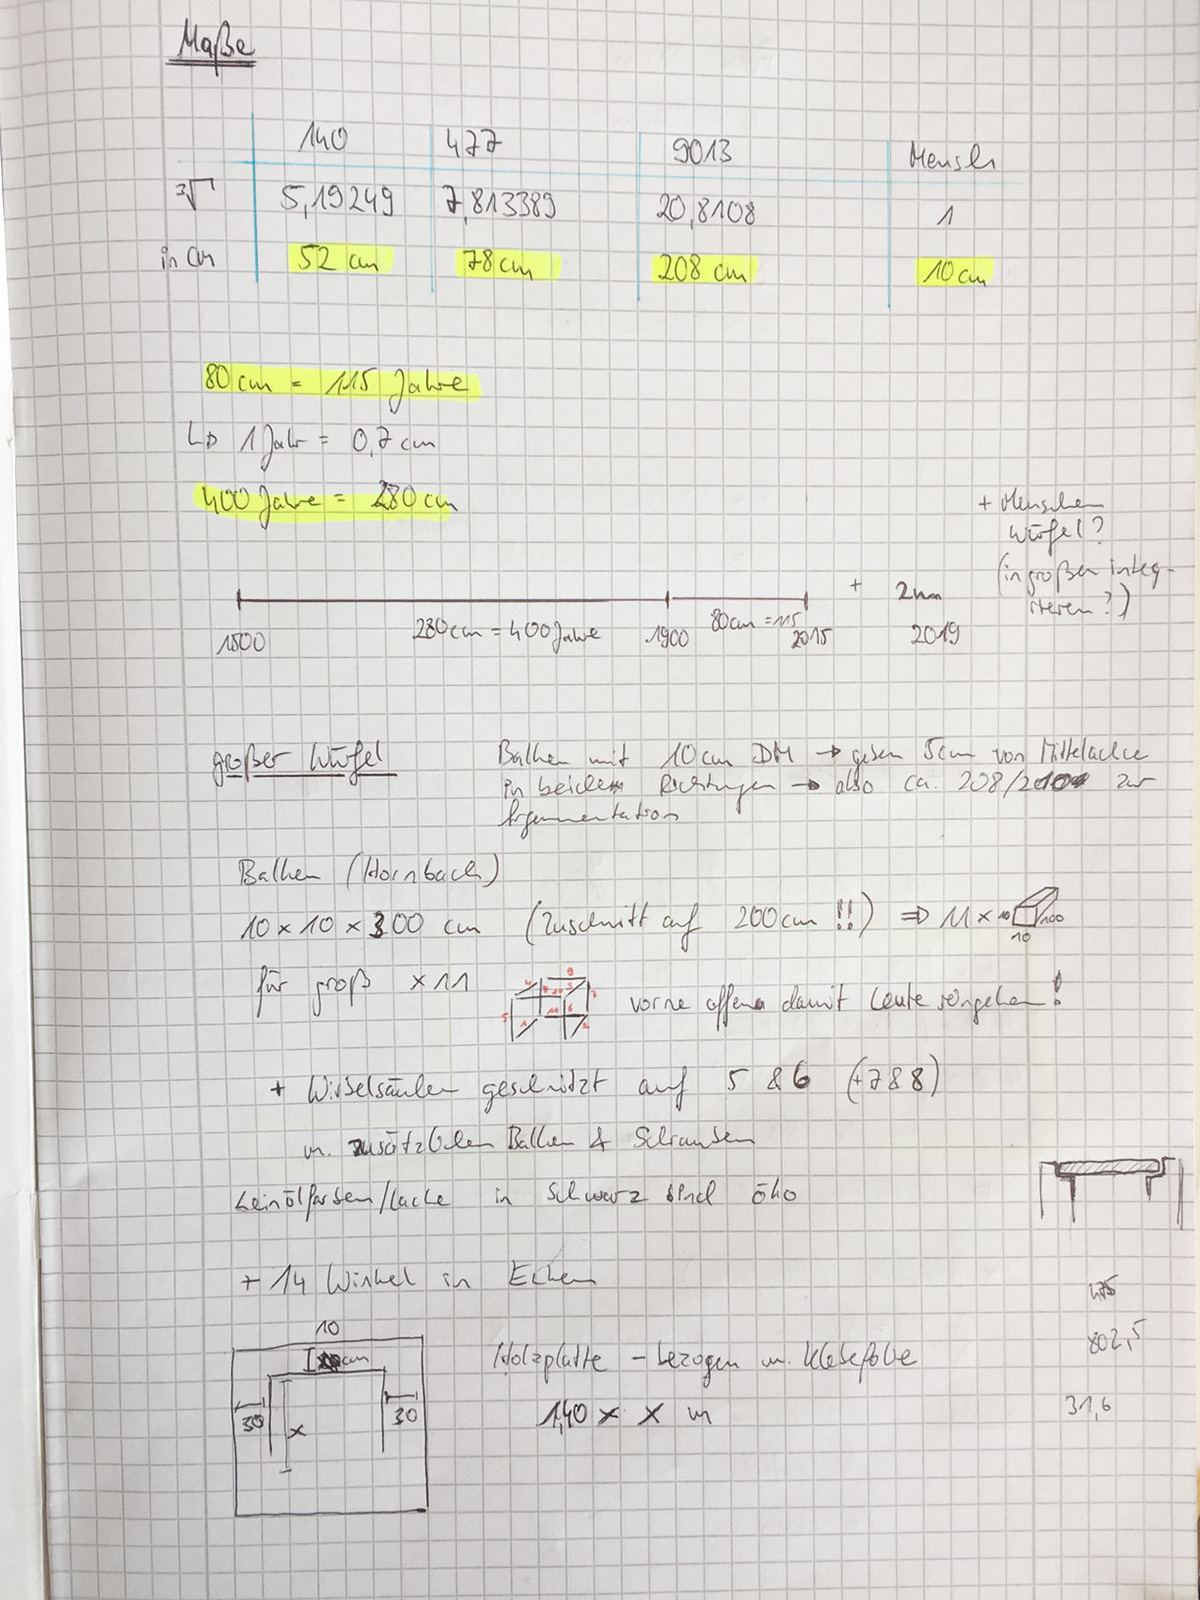 Maße
140 477 9013 Mensch
³√ 5,19249 7,813389 20,8108 1
in cm 52 cm 78 cm 208 cm 10 cm
80 cm = 115 Jahre
1 Jahr = 0,7 cm
400 Jahre = 280 cm
+ Menschen
würfel?
(in großen integ-
rieren?)
+ 2mm
280 cm = 400 Jahre 80 cm = 115
1500 1900 2015 2019
großer Würfel
Balken mit 10 cm DM → gehen 5cm von Mittelachse
in beiden Richtungen → also ca. 208/210 zur
Argumentation
Balken (Hornbach)
10 × 10 × 300 cm (Zuschnitt auf 200 cm !!) ⇒ 11 × 10 100
10
für groß × 11
vorne offen damit Leute reingehen!
+ Wirbelsäulen geschnitzt auf 5 & 6 (+7 & 8)
m. zusätzlichen Balken & Schrauben
Leinölfarben/lacke in schwarz sind öko
+ 14 Winkel in Ecken
10
30 x 30
Holzplatte – bezogen m. Klebefolie
1,40 × x m
802,5
31,6